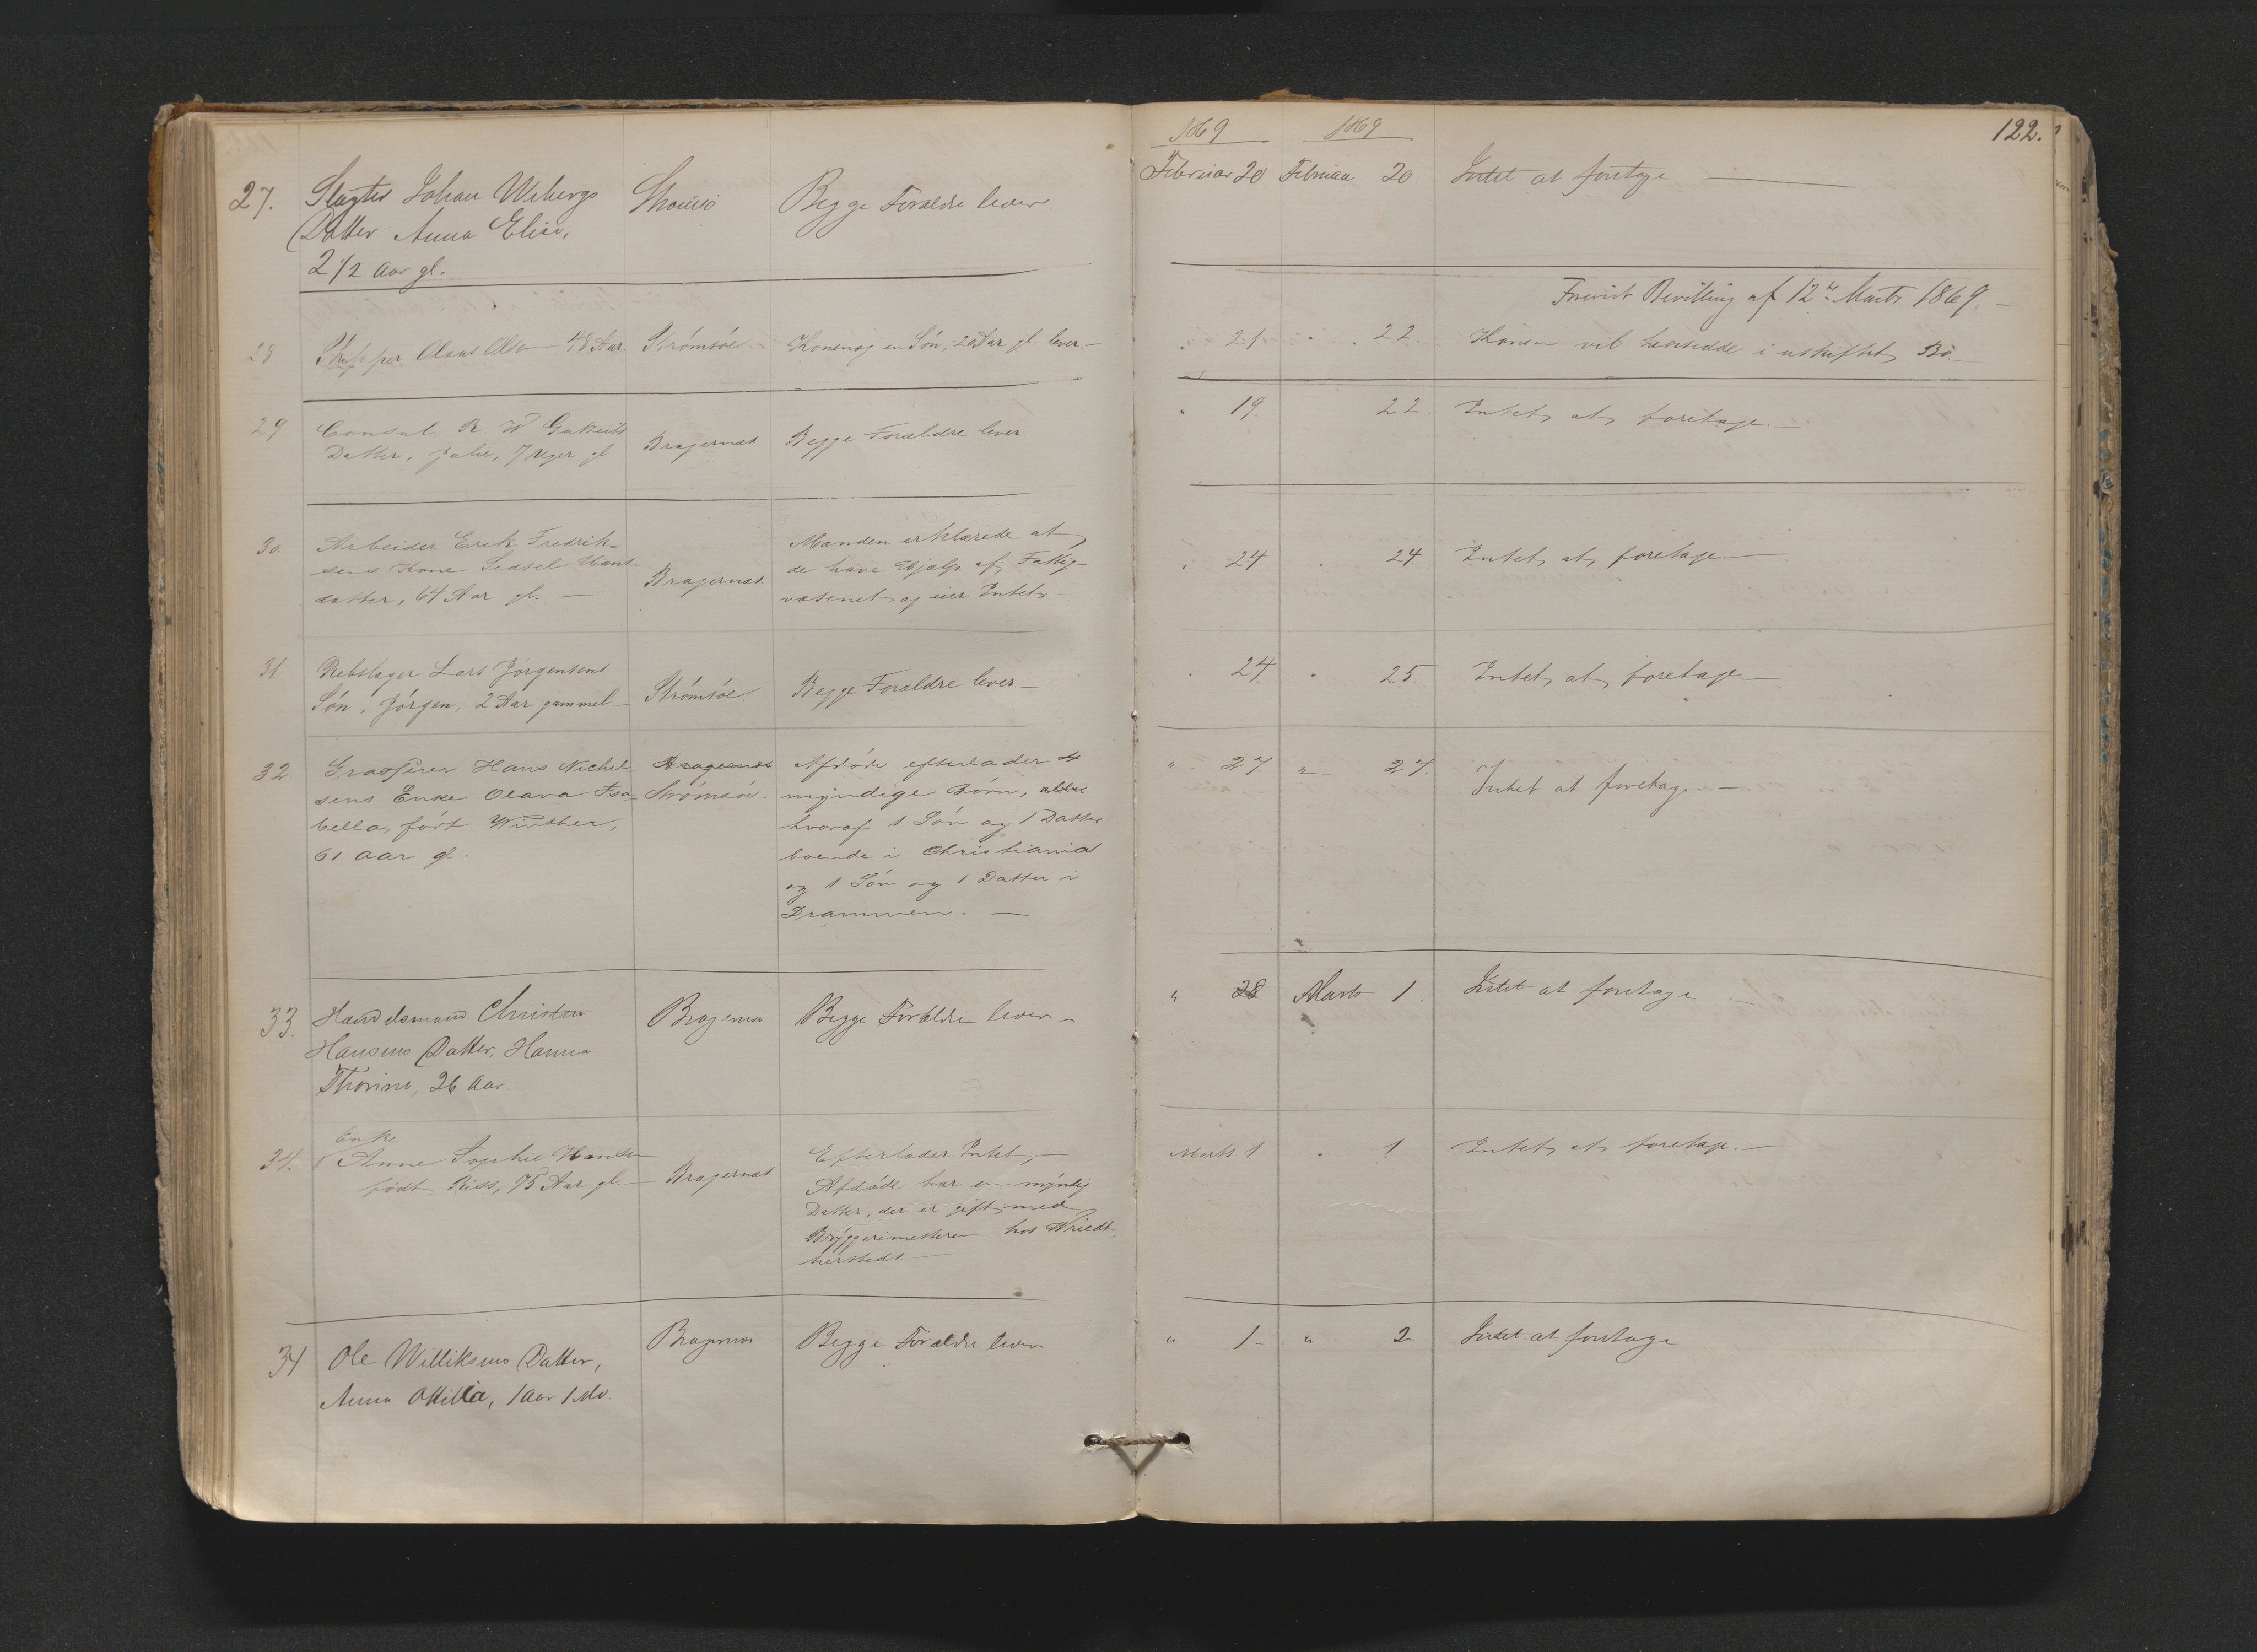 1869 1869 122.
27. Slagter Johan Wibergs Strömsö Begge Forældre lever. Februar 20 Februar 20. Intet at foretage —
Datter Anna Elise,
2 1/2 Aar gl.
Forevist Bevilling af 12te Marts 1869 —
28 Skipper Olaus Olsen 48 Aar. Strömsöe Konen og en Sön, 20 Aar gl. lever — " 21 " 22. Konen vil hensidde i uskiftet Bo
29 Consul R. W. Datter, Julie, 7 Uger gl Bragernæs Begge Forældre lever. " 19. 22. Intet at foretage. —
30. Arbeider Erik Fredrik-
sens Kone Sedsel Hans-
datter, 64 Aar gl. — Bragernæs
Manden erklærede at
de have Hjælp af Fattig-
væsenet og eier Intet — " 24 " 24 Intet at foretage —
31. Rebslager Lars Jörgensens
Sön, Jörgen, 2 Aar gammel — Strömsöe Begge Forældre lever. — " 24 " 25 Intet at foretage —
32 Grosserer Hans Nichel-
sens Enke Olava Isa-
bella, fört Winther,
61 Aar gl.
Bragernæs
Strömsöe.
Afdöde efterlader 4
myndige Börn, alle
hvoraf 1 Sön og 1 Datter
boende i Christiania
og 1 Sön og 1 Datter i
Drammen. —
" 27. " 27. Intet at foretage. —
33. Handelsmand Christen
Hansens Datter, Hanna
Thorine, 26 Aar
Bragernæs Begge Forældre lever — " 28 Marts 1 Intet at foretage
34. Enke
Anne Sophie Hansen
födt Riis, 75 Aar gl. — Bragernæs
Efterlader Intet; —
Afdöde har en myndig
Datter, der er gift med
Bryggerimesteren hos Wriedt,
hersteds —
Marts 1 " 1 Intet at foretage. —
34 Ole Williksens Datter,
Anna Ottilia, 1 Aar 1 Md.
Bragernæs Begge Forældre lever " 1 — " 2 Intet at foretage